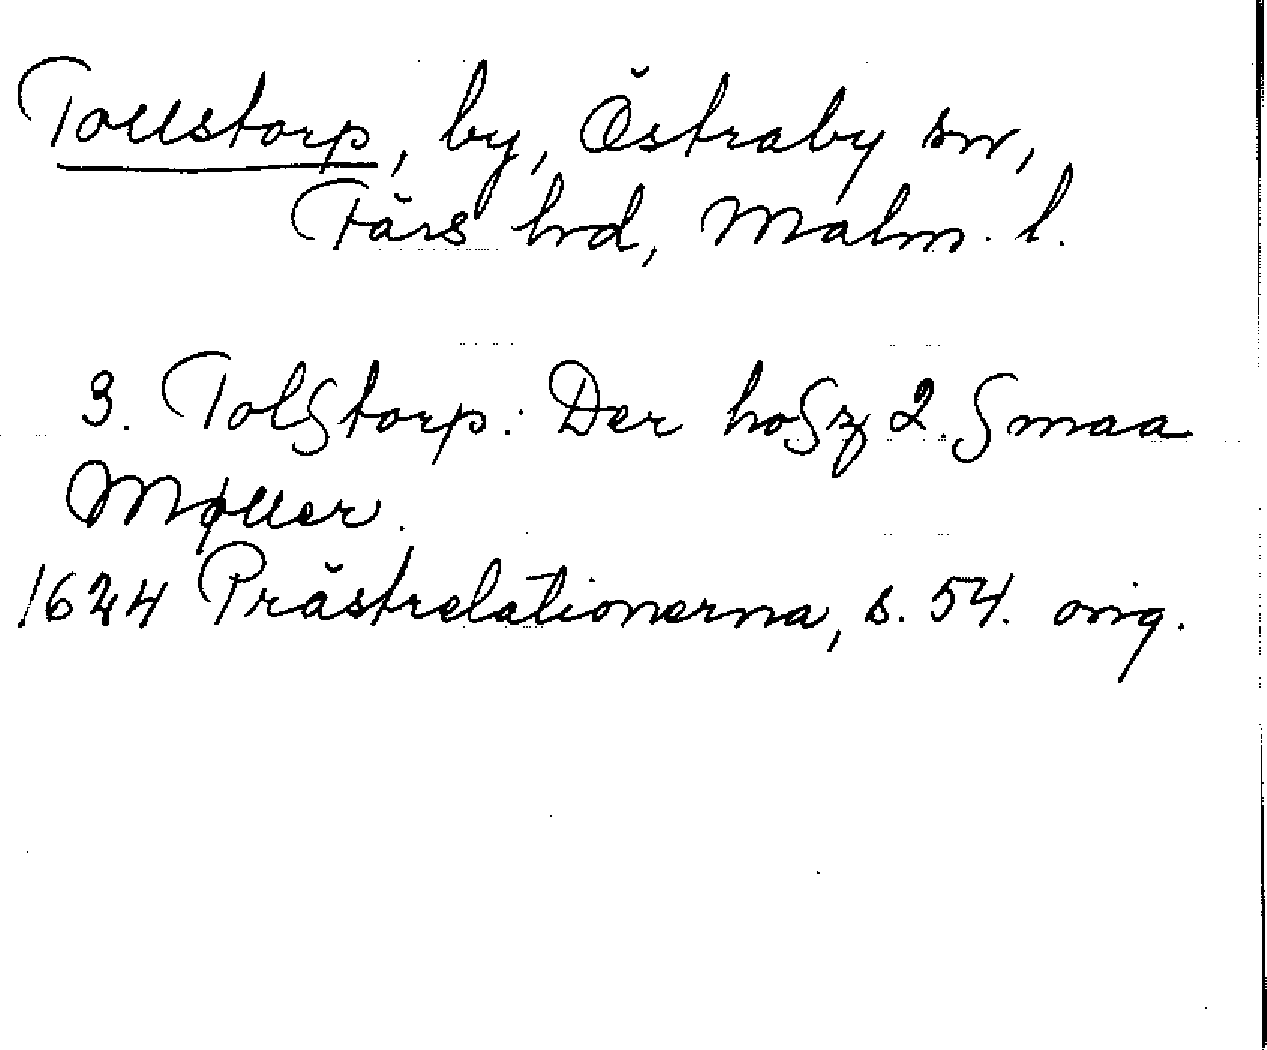 Tollstorp, by, Östraby sn,
Färs hrd, Malm. l.
3. Tolßtorp: Der hoßz 2. Smaa
Møller.
1624 Prästrelationerna, s. 54. orig.